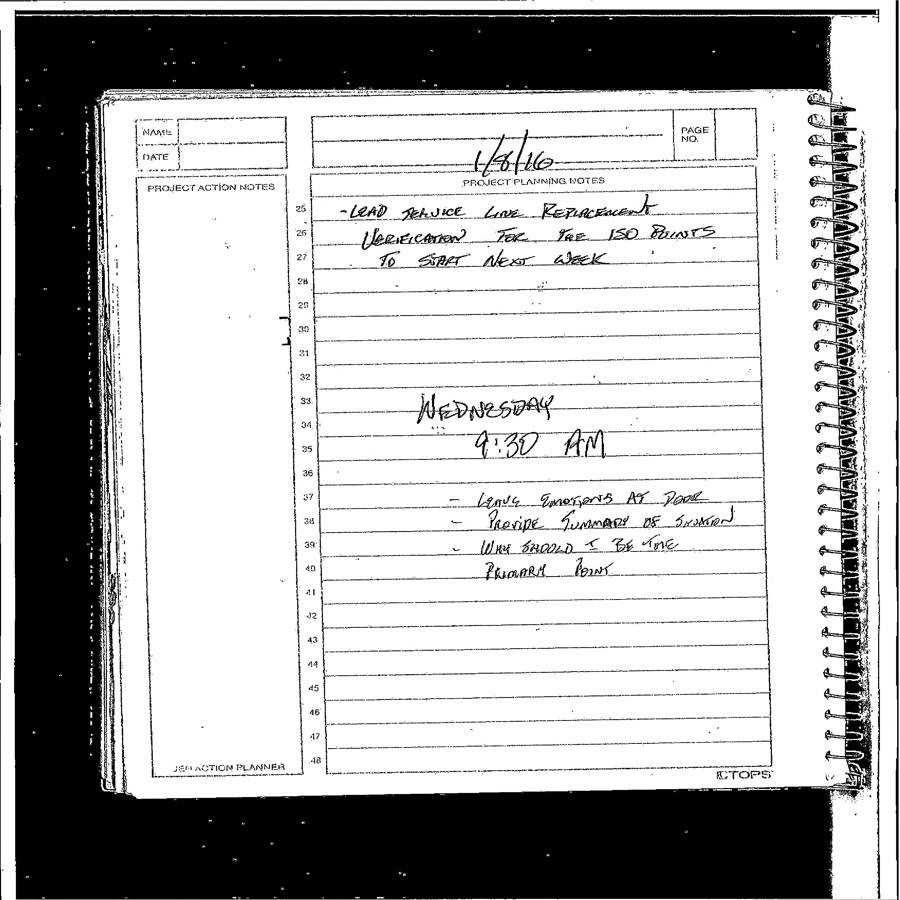 NAME
DATE
PAGE NO.
1/8/16
PROJECT ACTION NOTES
PROJECT PLANNING NOTES
25 - LEAD SERVICE LINE REPLACEMENT
26 VERIFICATION FOR THE 150 POINTS
27 TO START NEXT WEEK
28
29
30
31
32
33 WEDNESDAY
34
35 9:30 AM
36
37 - LEAVE EMOTIONS AT DOOR
38 - PROVIDE SUMMARY OF SITUATION
39 - WHY SHOULD I BE THE
40 PRIMARY POINT
41
42
43
44
45
46
47
48
ACTION PLANNER
TOPS